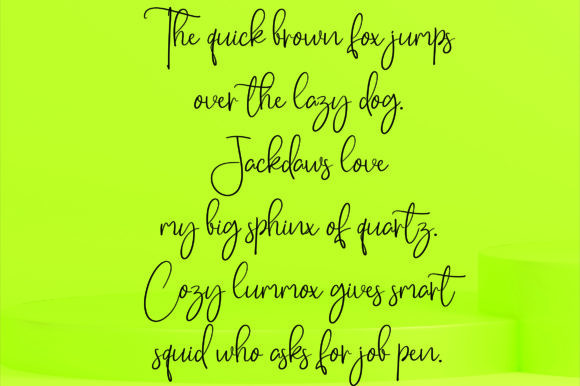 The quick brown fox jumps
over the lazy dog.
Jackdaws love
my big sphinx of quartz.
Cozy lummox gives smart
squid who asks for job pen.